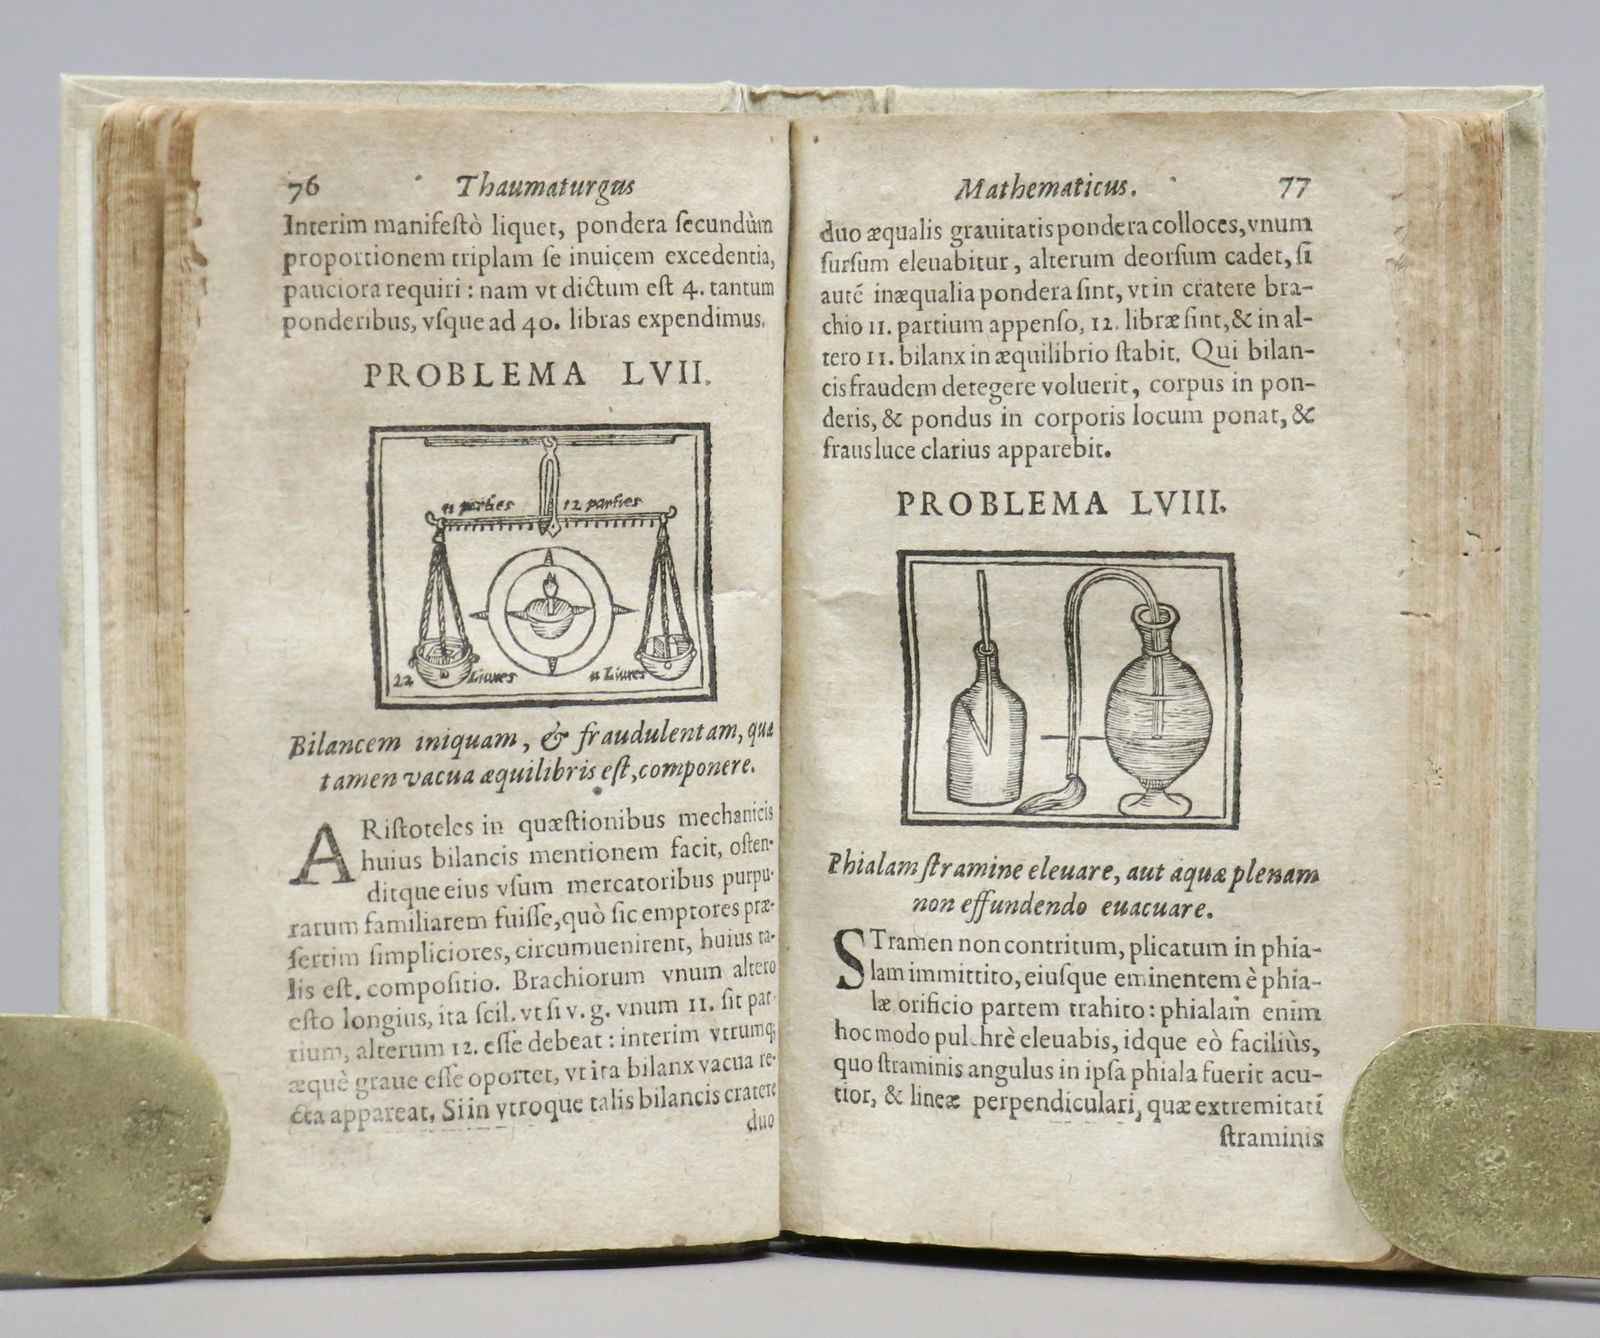 76 Thaumaturgus
Interim manifeſtò liquet, pondera ſecundùm
proportionem triplam ſe inuicem excedentia,
pauciora requiri : nam vt dictum eſt 4. tantum
ponderibus, vſque ad 40. libras expendimus.
PROBLEMA LVII.
11 parties 12 parties
12 Liures 11 Liures
Bilancem iniquam, & fraudulentam, quæ
tamen vacua æquilibris eſt, componere.
ARiſtoteles in quæſtionibus mechanicis
huius bilancis mentionem facit, oſten-
ditque eius vſum mercatoribus purpu-
rarum familiarem fuiſſe, quò ſic emptores præ-
ſertim ſimpliciores, circumuenirent, huius ta-
lis eſt. compoſitio. Brachiorum vnum altero
eſto longius, ita ſcil. vt ſi v. g. vnum 11. ſit par-
tium, alterum 12. eſſe debeat : interim vtrumq;
æquè graue eſſe oportet, vt ita bilanx vacua re-
cta appareat. Si in vtroque talis bilancis cratere
duo
Mathematicus. 77
duo æqualis grauitatis pondera colloces, vnum
ſurſum eleuabitur, alterum deorſum cadet, ſi
autē inæqualia pondera ſint, vt in cratere bra-
chio 11. partium appenſo, 12. libræ ſint, & in al-
tero 11. bilanx in æquilibrio ſtabit. Qui bilan-
cis fraudem detegere voluerit, corpus in pon-
deris, & pondus in corporis locum ponat, &
fraus luce clarius apparebit.
PROBLEMA LVIII.
Phialam ſtramine eleuare, aut aquæ plenam
non effundendo euacuare.
STramen non contritum, plicatum in phia-
lam immittito, eiuſque eminentem è phia-
læ orificio partem trahito : phialam enim
hoc modo pulchrè eleuabis, idque eò faciliùs,
quo ſtraminis angulus in ipſa phiala fuerit acu-
tior, & lineæ perpendiculari, quæ extremitati
ſtraminis